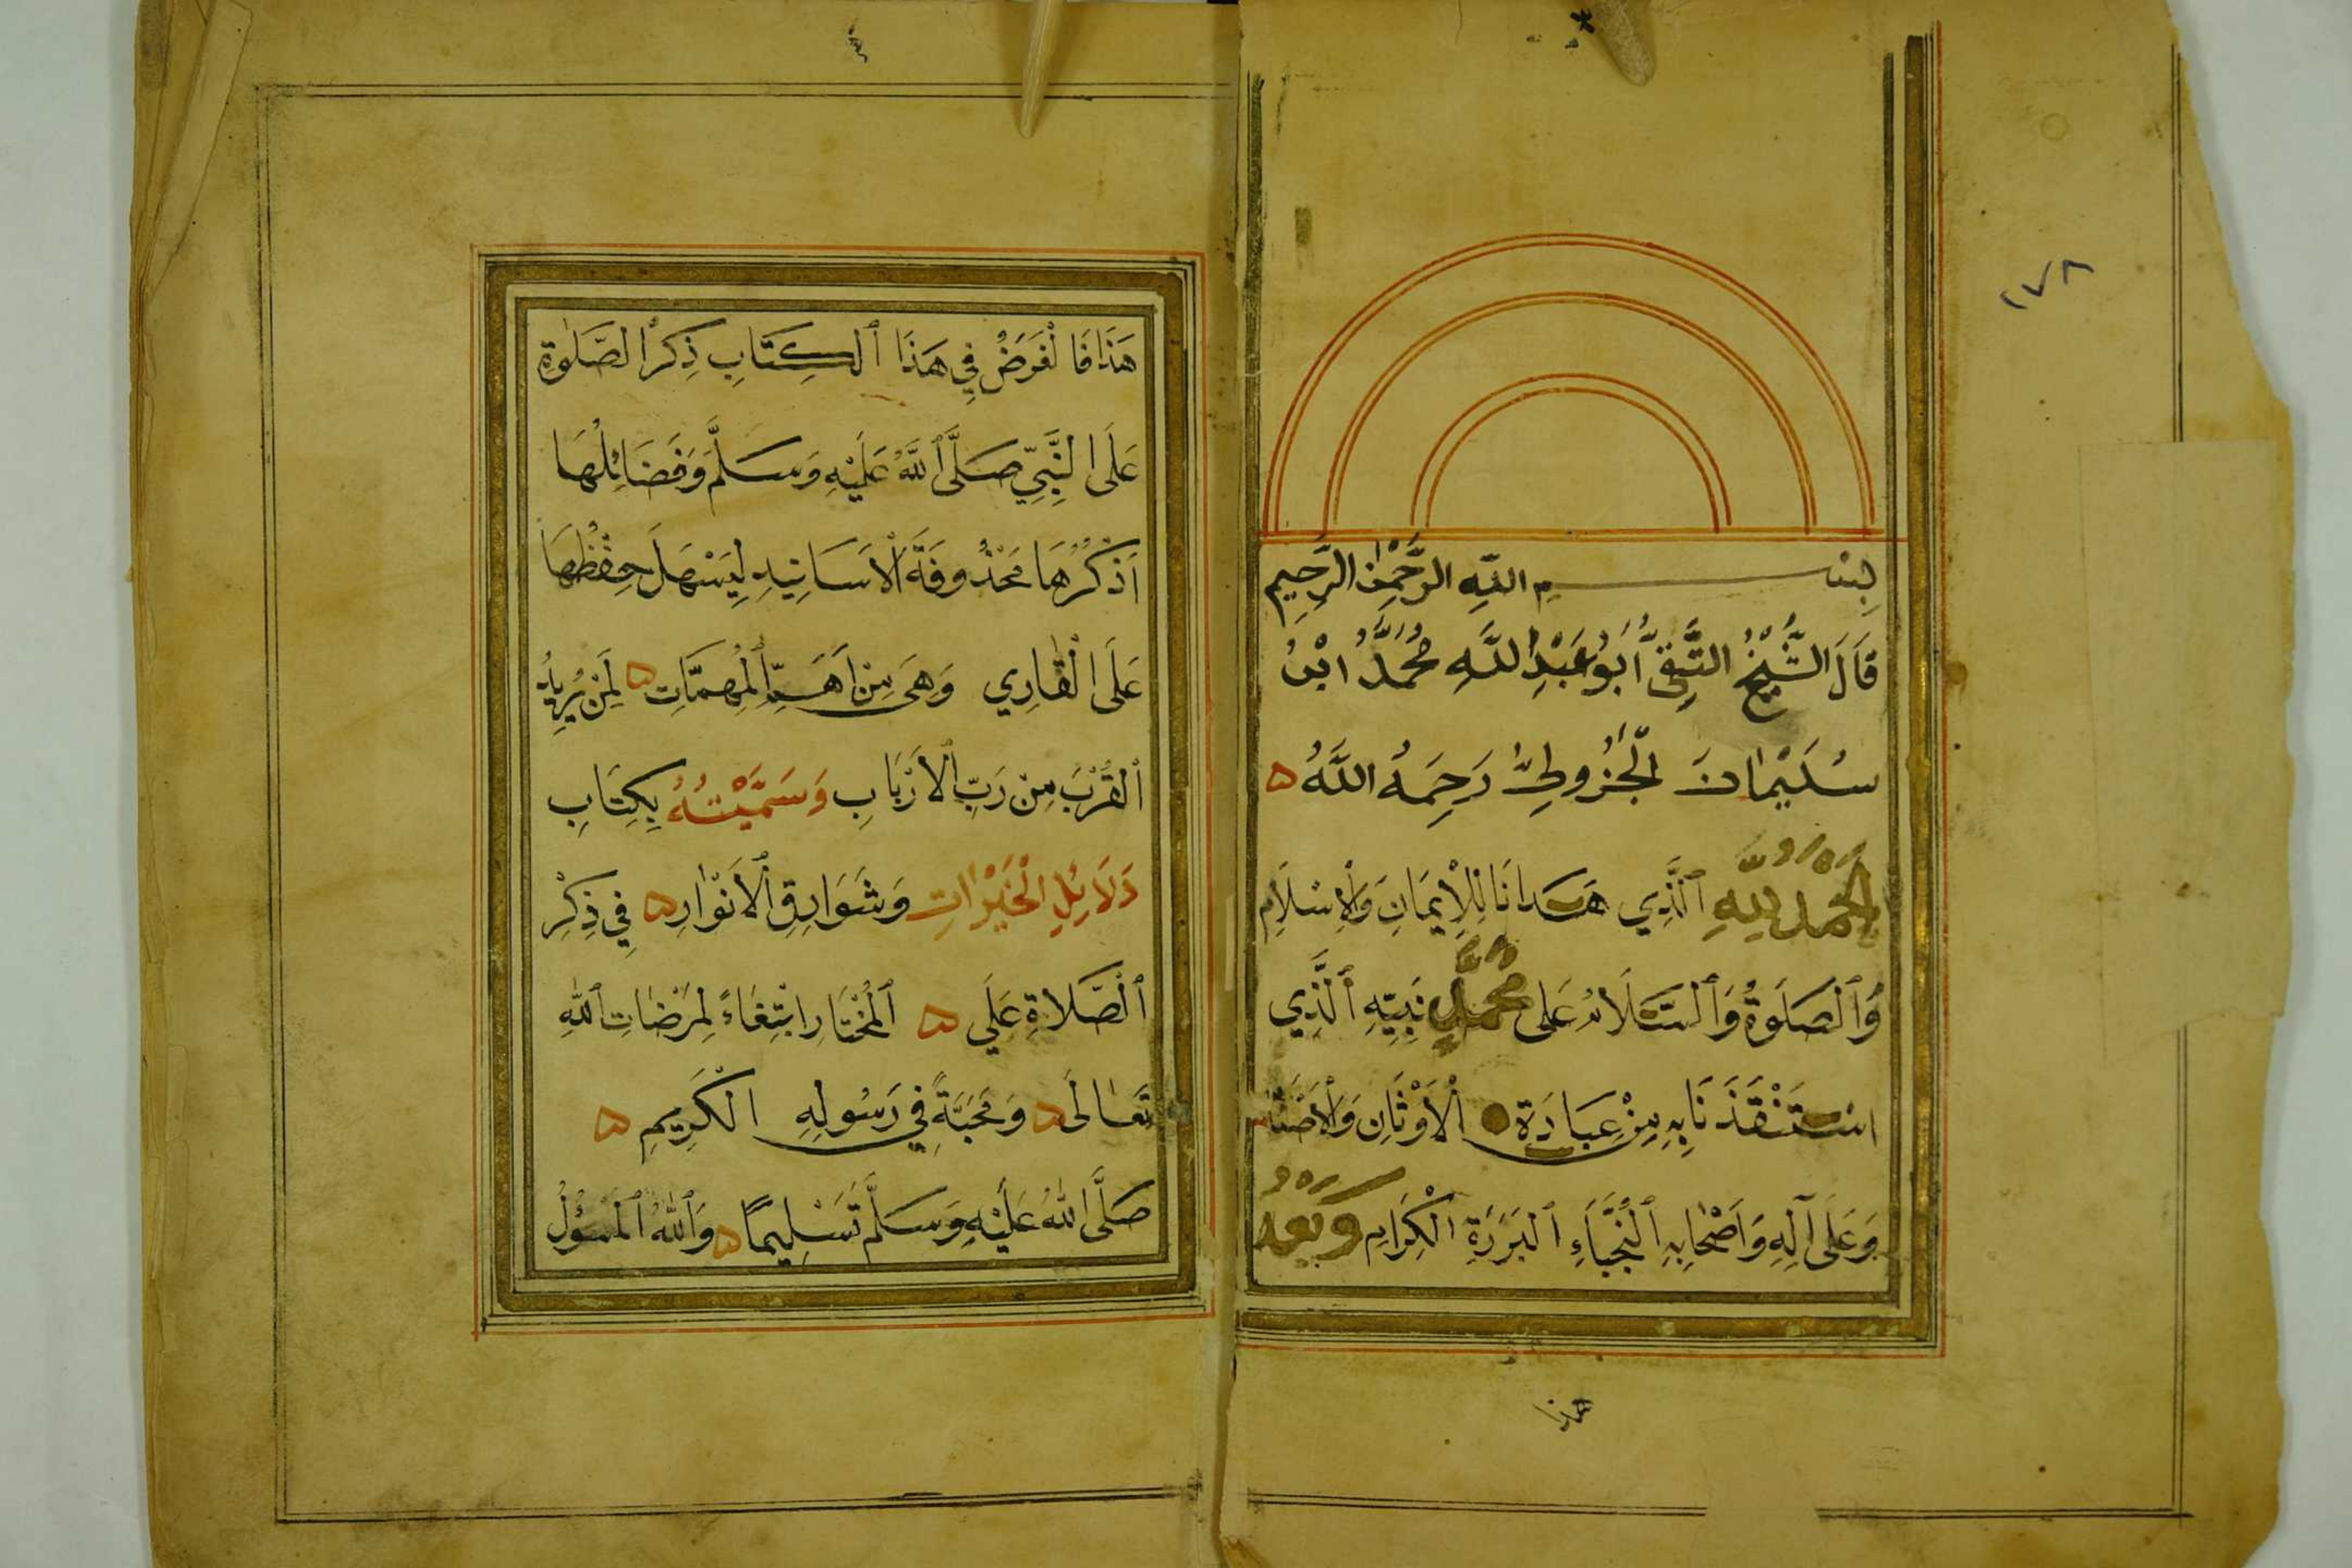 ١٧٨
بِسْمِ اللّٰهِ الرَّحْمٰنِ الرَّحِيمِ
قَالَ الشَّيْخُ التَّقِيُّ أَبُو عَبْدِ اللَّهِ مُحَمَّدُ ابْنُ
سُلَيْمَانَ الْجُزُولِيُّ رَحِمَهُ اللَّهُ ۵
الْحَمْدُ لِلَّهِ ٱلَّذِي هَدَانَا لِلْاِيمَانِ وَالْاِسْلَامِ
وَٱلصَّلَوةُ وَٱلسَّلَامُ عَلَى مُحَمَّدٍ نَبِيِّهِ ٱلَّذِي
اسْتَنْقَذَنَا بِهِ مِنْ عِبَادَةِ الْاَوْثَانِ وَالْاَصْنَامِ
وَعَلَى آلِهِ وَاَصْحَابِهِ ٱلنُّجَبَاءِ ٱلْبَرَرَةِ الْكِرَامِ وَبَعْدُ
هذا
هَذَا فَالْغَرَضُ فِي هَذَا ٱلْكِتَابِ ذِكْرُ الصَّلٰوةِ
عَلَى النَّبِيِّ صَلَّى ٱللَّهُ عَلَيْهِ وَسَلَّمَ وَفَضَائِلُهَا
اَذْكُرُهَا مَحْذُوفَةَ ٱلْاَسَانِيدِ لِيَسْهَلَ حِفْظُهَا
عَلَى الْقَارِي وَهِيَ مِنْ اَهَمِّ ٱلْمُهِمَّاتِ ۵ لِمَنْ يُرِيدُ
ٱلْقُرْبَ مِنْ رَبِّ ٱلْاَرْبَابِ وَسَمَّيْتُهُ بِكِتَابِ
دَلَائِلِ الْخَيْرَاتِ وَشَوَارِقِ ٱلْاَنْوَارِ ۵ فِي ذِكْرِ
ٱلصَّلَاةِ عَلَي ۵ ٱلْمُخْتَارِ ابْتِغَاءً لِمَرْضَاتِ ٱللّٰهِ
تَعَالَى ۵ وَمَحَبَّةً فِي رَسُولِهِ الْكَرِيمِ ۵
صَلَّى اللّٰهُ عَلَيْهِ وَسَلَّمَ تَسْلِيمًا ۵ وَٱللّٰهُ ٱلْمَسْؤُلُ